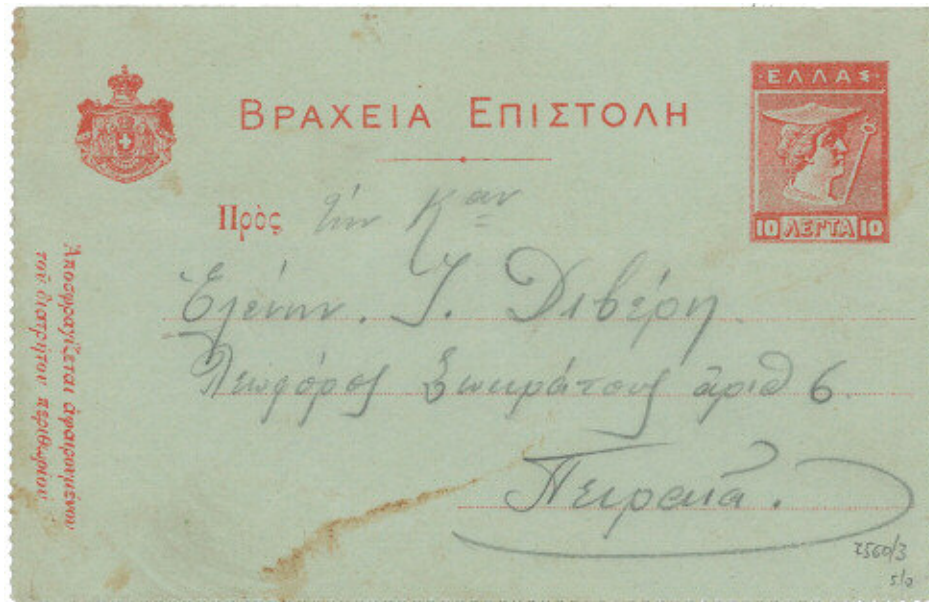 ΒΡΑΧΕΙΑ ΕΠΙΣΤΟΛΗ
ΕΛΛΑΣ
10 ΛΕΠΤΑ 10
Πρὸς τὴν Καν
Ἑλένην. Ι. Διβέρη
Λεωφόρος Σωκράτους ἀριθ 6.
Πειραιᾶ.
Ἀποσφραγίζεται ἀφαιρουμένου
τοῦ διατρήτου περιθωρίου
2560/3